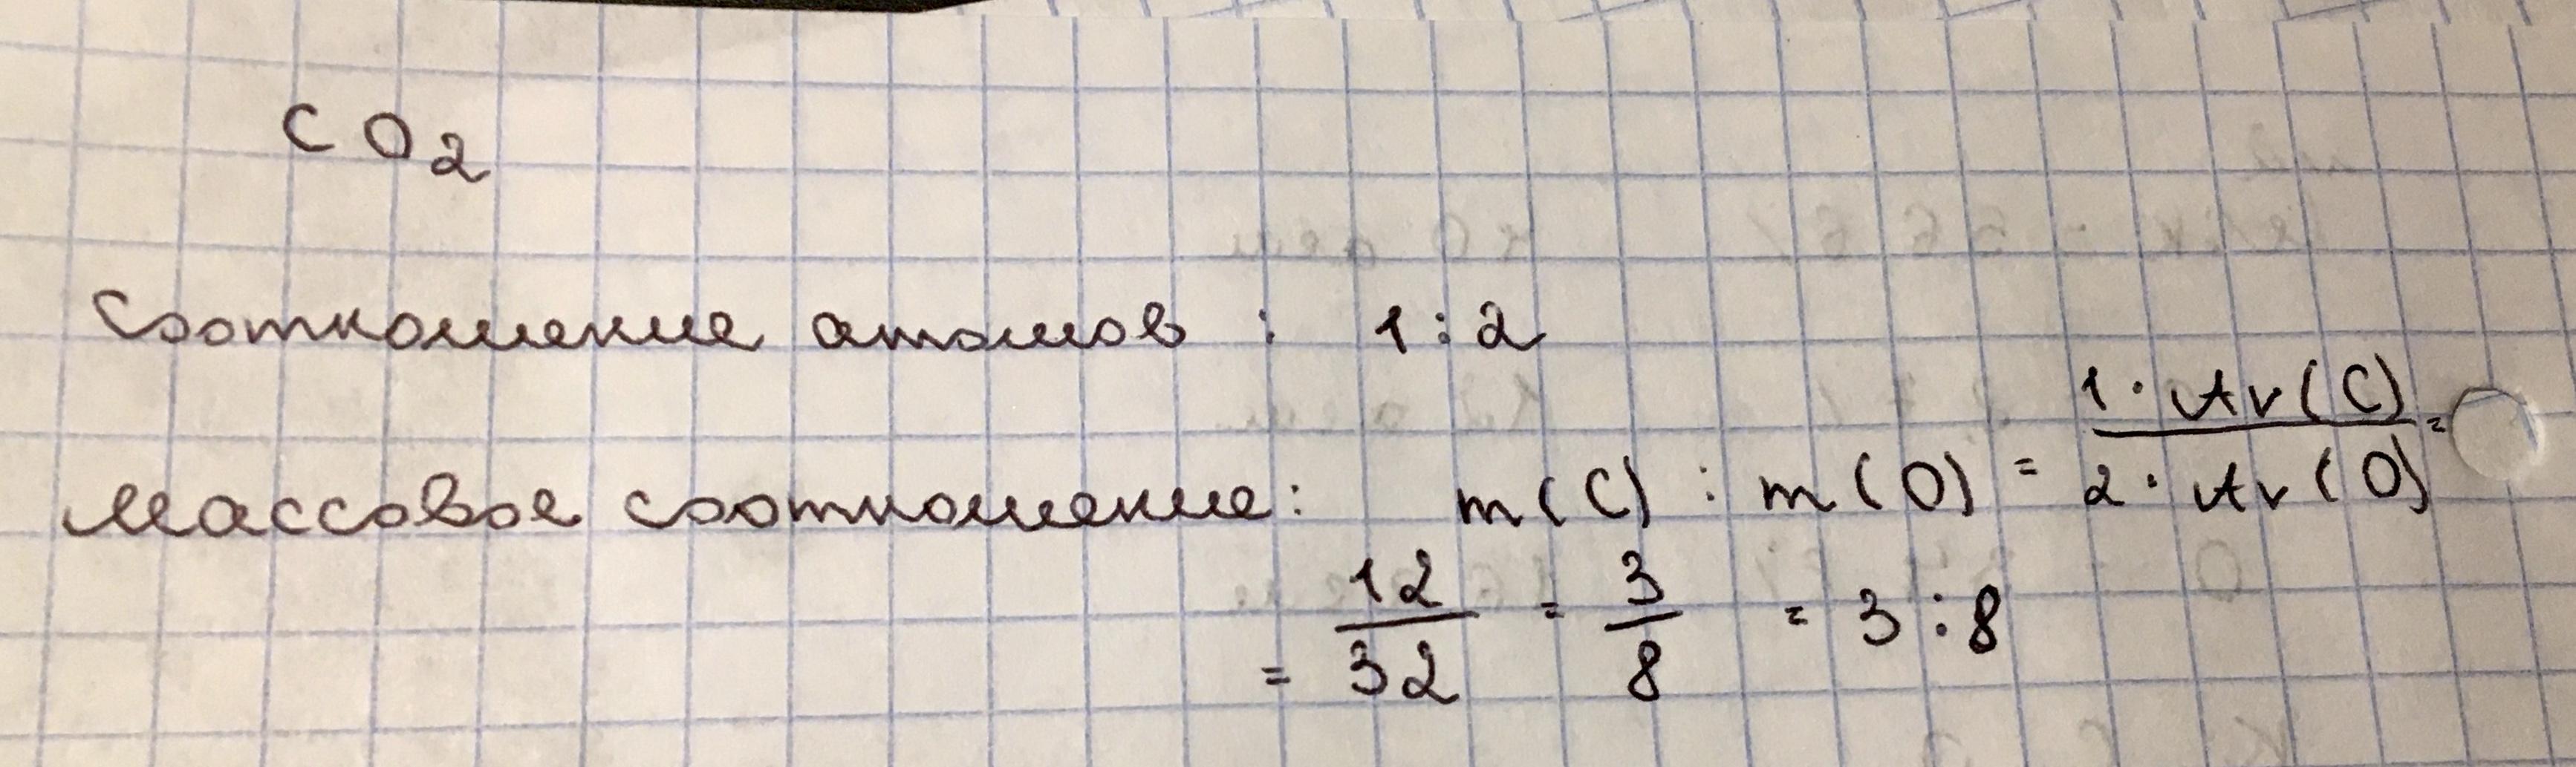 CO₂
Соотношение атомов : 1:2
Массовое соотношение: m(C) : m(O) = 1·Ar(C) / 2·Ar(O) =
= 12/32 = 3/8 = 3:8